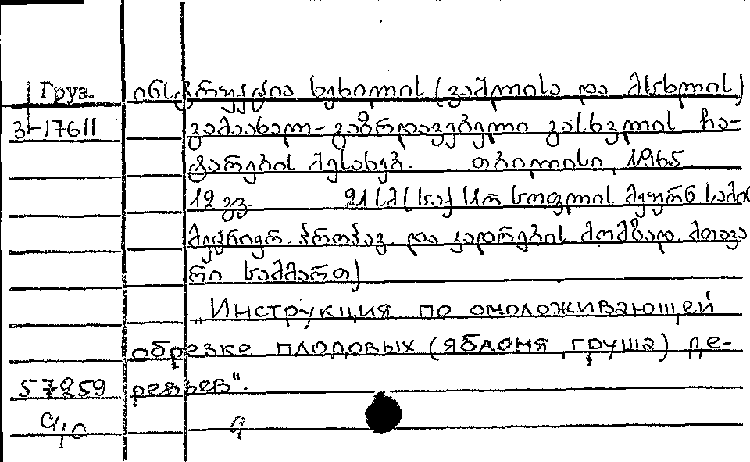 Груз. ინსტრუქცია ხეხილის (ვაშლისა და მსხლის)
3-17611 გამაახალ-გაზრდავებელი გასხვლის ჩა-
ტარების შესახებ. თბილისი, 1965.
12 გვ. 21 სმ (საქ. სსრ სოფლის მეურნ. სამი
მეცნიერ. პროპაგ. და კადრების მომზად. მთავა
რი სამმართ.)
„Инструкция по омоложивающей
обрезке плодовых (яблоня, груша) де-
57259 ревьев".